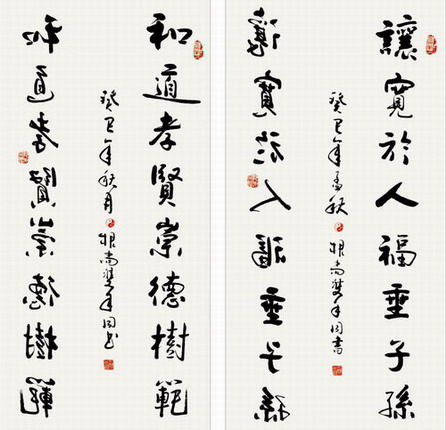 讓寬於人福垂子孫
癸巳年孟秋根尚雙手同書
讓寬於人福垂子孫
和道孝賢崇德樹範
癸巳年秋月根尚雙手同書
和道孝賢崇德樹範